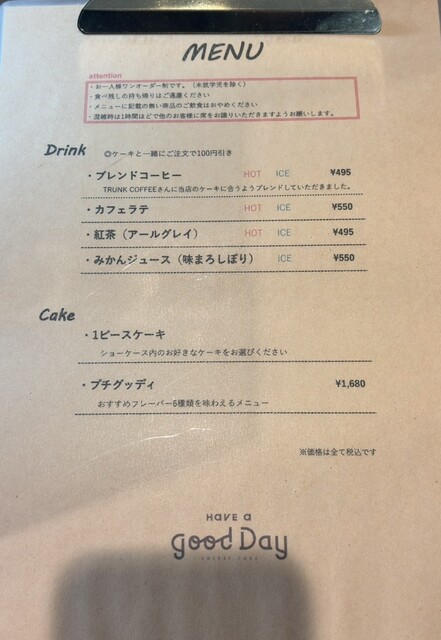 MENU
attention
・お一人様ワンオーダー制です。（未就学児を除く）
・食べ残しの持ち帰りはご遠慮ください
・メニューに記載の無い商品のご飲食はおやめください
・混雑時は1時間ほどで他のお客様に席をお譲りいただきますようお願いします。
Drink ◎ケーキと一緒にご注文で100円引き
・ブレンドコーヒー HOT ICE ¥495
TRUNK COFFEEさんに当店のケーキに合うようブレンドしていただきました。
・カフェラテ HOT ICE ¥550
・紅茶（アールグレイ） HOT ICE ¥495
・みかんジュース（味まろしぼり） ICE ¥550
Cake
・1ピースケーキ
ショーケース内のお好きなケーキをお選びください
・プチグッディ ¥1,680
おすすめフレーバー6種類を味わえるメニュー
※価格は全て税込です
HAVE a
good Day